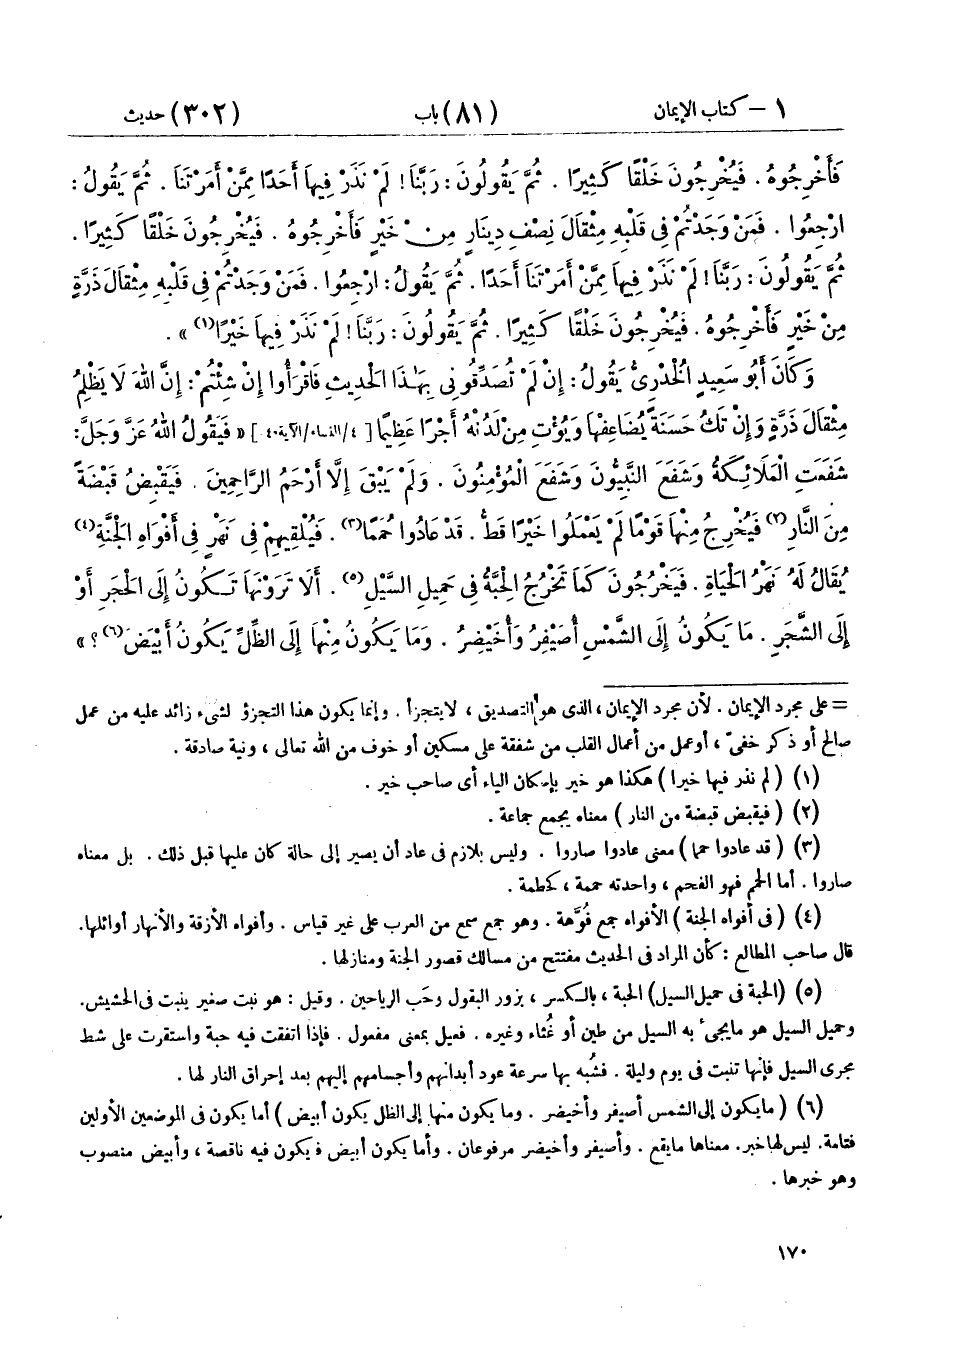 ١ – كتاب الإيمان (٨١) باب (٣٠٢) حديث
فَأَخْرِجُوهُ . فَيُخْرِجُونَ خَلْقًا كَثِيرًا . ثُمَّ يَقُولُونَ : رَبَّنَا ! لَمْ نَذَرْ فِيهَا أَحَدًا مِمَّنْ أَمَرْتَنَا . ثُمَّ يَقُولُ :
ارْجِعُوا . فَمَنْ وَجَدْتُمْ فِي قَلْبِهِ مِثْقَالَ نِصْفِ دِينَارٍ مِنْ خَيْرٍ فَأَخْرِجُوهُ . فَيُخْرِجُونَ خَلْقًا كَثِيرًا .
ثُمَّ يَقُولُونَ : رَبَّنَا ! لَمْ نَذَرْ فِيهَا مِمَّنْ أَمَرْتَنَا أَحَدًا . ثُمَّ يَقُولُ : ارْجِعُوا . فَمَنْ وَجَدْتُمْ فِي قَلْبِهِ مِثْقَالَ ذَرَّةٍ
مِنْ خَيْرٍ فَأَخْرِجُوهُ . فَيُخْرِجُونَ خَلْقًا كَثِيرًا . ثُمَّ يَقُولُونَ : رَبَّنَا ! لَمْ نَذَرْ فِيهَا خَيْرًا (١) » .
وَكَانَ أَبُو سَعِيدٍ الْخُدْرِيُّ يَقُولُ : إِنْ لَمْ تُصَدِّقُونِي بِهَٰذَا الْحَدِيثِ فَاقْرَأُوا إِنْ شِئْتُمْ : إِنَّ اللهَ لَا يَظْلِمُ
مِثْقَالَ ذَرَّةٍ وَإِنْ تَكُ حَسَنَةً يُضَاعِفْهَا وَيُؤْتِ مِنْ لَدُنْهُ أَجْرًا عَظِيمًا [ ٤/النساء/الآية ٤٠ ] « فَيَقُولُ اللهُ عَزَّ وَجَلَّ :
شَفَعَتِ الْمَلَائِكَةُ وَشَفَعَ النَّبِيُّونَ وَشَفَعَ الْمُؤْمِنُونَ . وَلَمْ يَبْقَ إِلَّا أَرْحَمُ الرَّاحِمِينَ . فَيَقْبِضُ قَبْضَةً
مِنَ النَّارِ (٢) فَيُخْرِجُ مِنْهَا قَوْمًا لَمْ يَعْمَلُوا خَيْرًا قَطُّ . قَدْ عَادُوا حُمَمًا (٣) . فَيُلْقِيهِمْ فِي نَهَرٍ فِي أَفْوَاهِ الْجَنَّةِ (٤)
يُقَالُ لَهُ نَهْرُ الْحَيَاةِ . فَيَخْرُجُونَ كَمَا تَخْرُجُ الْحِبَّةُ فِي حَمِيلِ السَّيْلِ (٥) . أَلَا تَرَوْنَهَا تَكُونُ إِلَى الْحَجَرِ أَوْ
إِلَى الشَّجَرِ . مَا يَكُونُ إِلَى الشَّمْسِ أُصَيْفِرُ وَأُخَيْضِرُ . وَمَا يَكُونُ مِنْهَا إِلَى الظِّلِّ يَكُونُ أَبْيَضَ (٦) ؟ »
= على مجرد الإيمان . لأن مجرد الإيمان ، الذى هو التصديق ، لايتجزأ . وإنما يكون هذا التجزؤ لشىء زائد عليه من عمل
صالح أو ذكر خفىّ ، أو عمل من أعمال القلب من شفقة على مسكين أو خوف من الله تعالى ، ونية صادقة .
(١) ( لم نذر فيها خيرا ) هكذا هو خير بإسكان الياء أى صاحب خير .
(٢) ( فيقبض قبضة من النار ) معناه يجمع جماعة .
(٣) ( قد عادوا حمما ) معنى عادوا صاروا . وليس بلازم فى عاد أن يصير إلى حالة كان عليها قبل ذلك . بل معناه
صاروا . أما الحمم فهو الفحم ، واحدته حممة ، كحطمة .
(٤) ( فى أفواه الجنة ) الأفواه جمع فُوَّهة . وهو جمع سمع من العرب على غير قياس . وأفواه الأزقة والأنهار أوائلها .
قال صاحب المطالع : كأن المراد فى الحديث مفتتح من مسالك قصور الجنة ومنازلها .
(٥) (الحبة فى حميل السيل) الحبة ، بالكسر ، بزور البقول وحَب الرياحين . وقيل : هو نبت صغير ينبت فى الحشيش .
وحميل السيل هو مايجىء به السيل من طين أو غُثاء وغيره . فعيل بمعنى مفعول . فإذا اتفقت فيه حبة واستقرت على شط
مجرى السيل فإنها تنبت فى يوم وليلة . فشُبه بها سرعة عود أبدانهم وأجسامهم إليهم بعد إحراق النار لها .
(٦) ( مايكون إلى الشمس أصيفر وأخيضر . وما يكون منها إلى الظل يكون أبيض ) أما يكون فى الموضعين الأولين
فتامة . ليس لها خبر . معناها مايقع . وأصيفر وأخيضر مرفوعان . وأما يكون أبيض فيكون فيه ناقصة ، وأبيض منصوب
وهو خبرها .
١٧٠